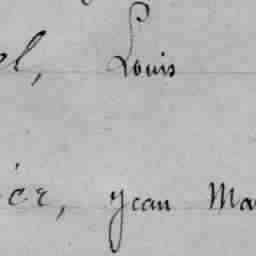 el, Louis
ice, Jean Ma